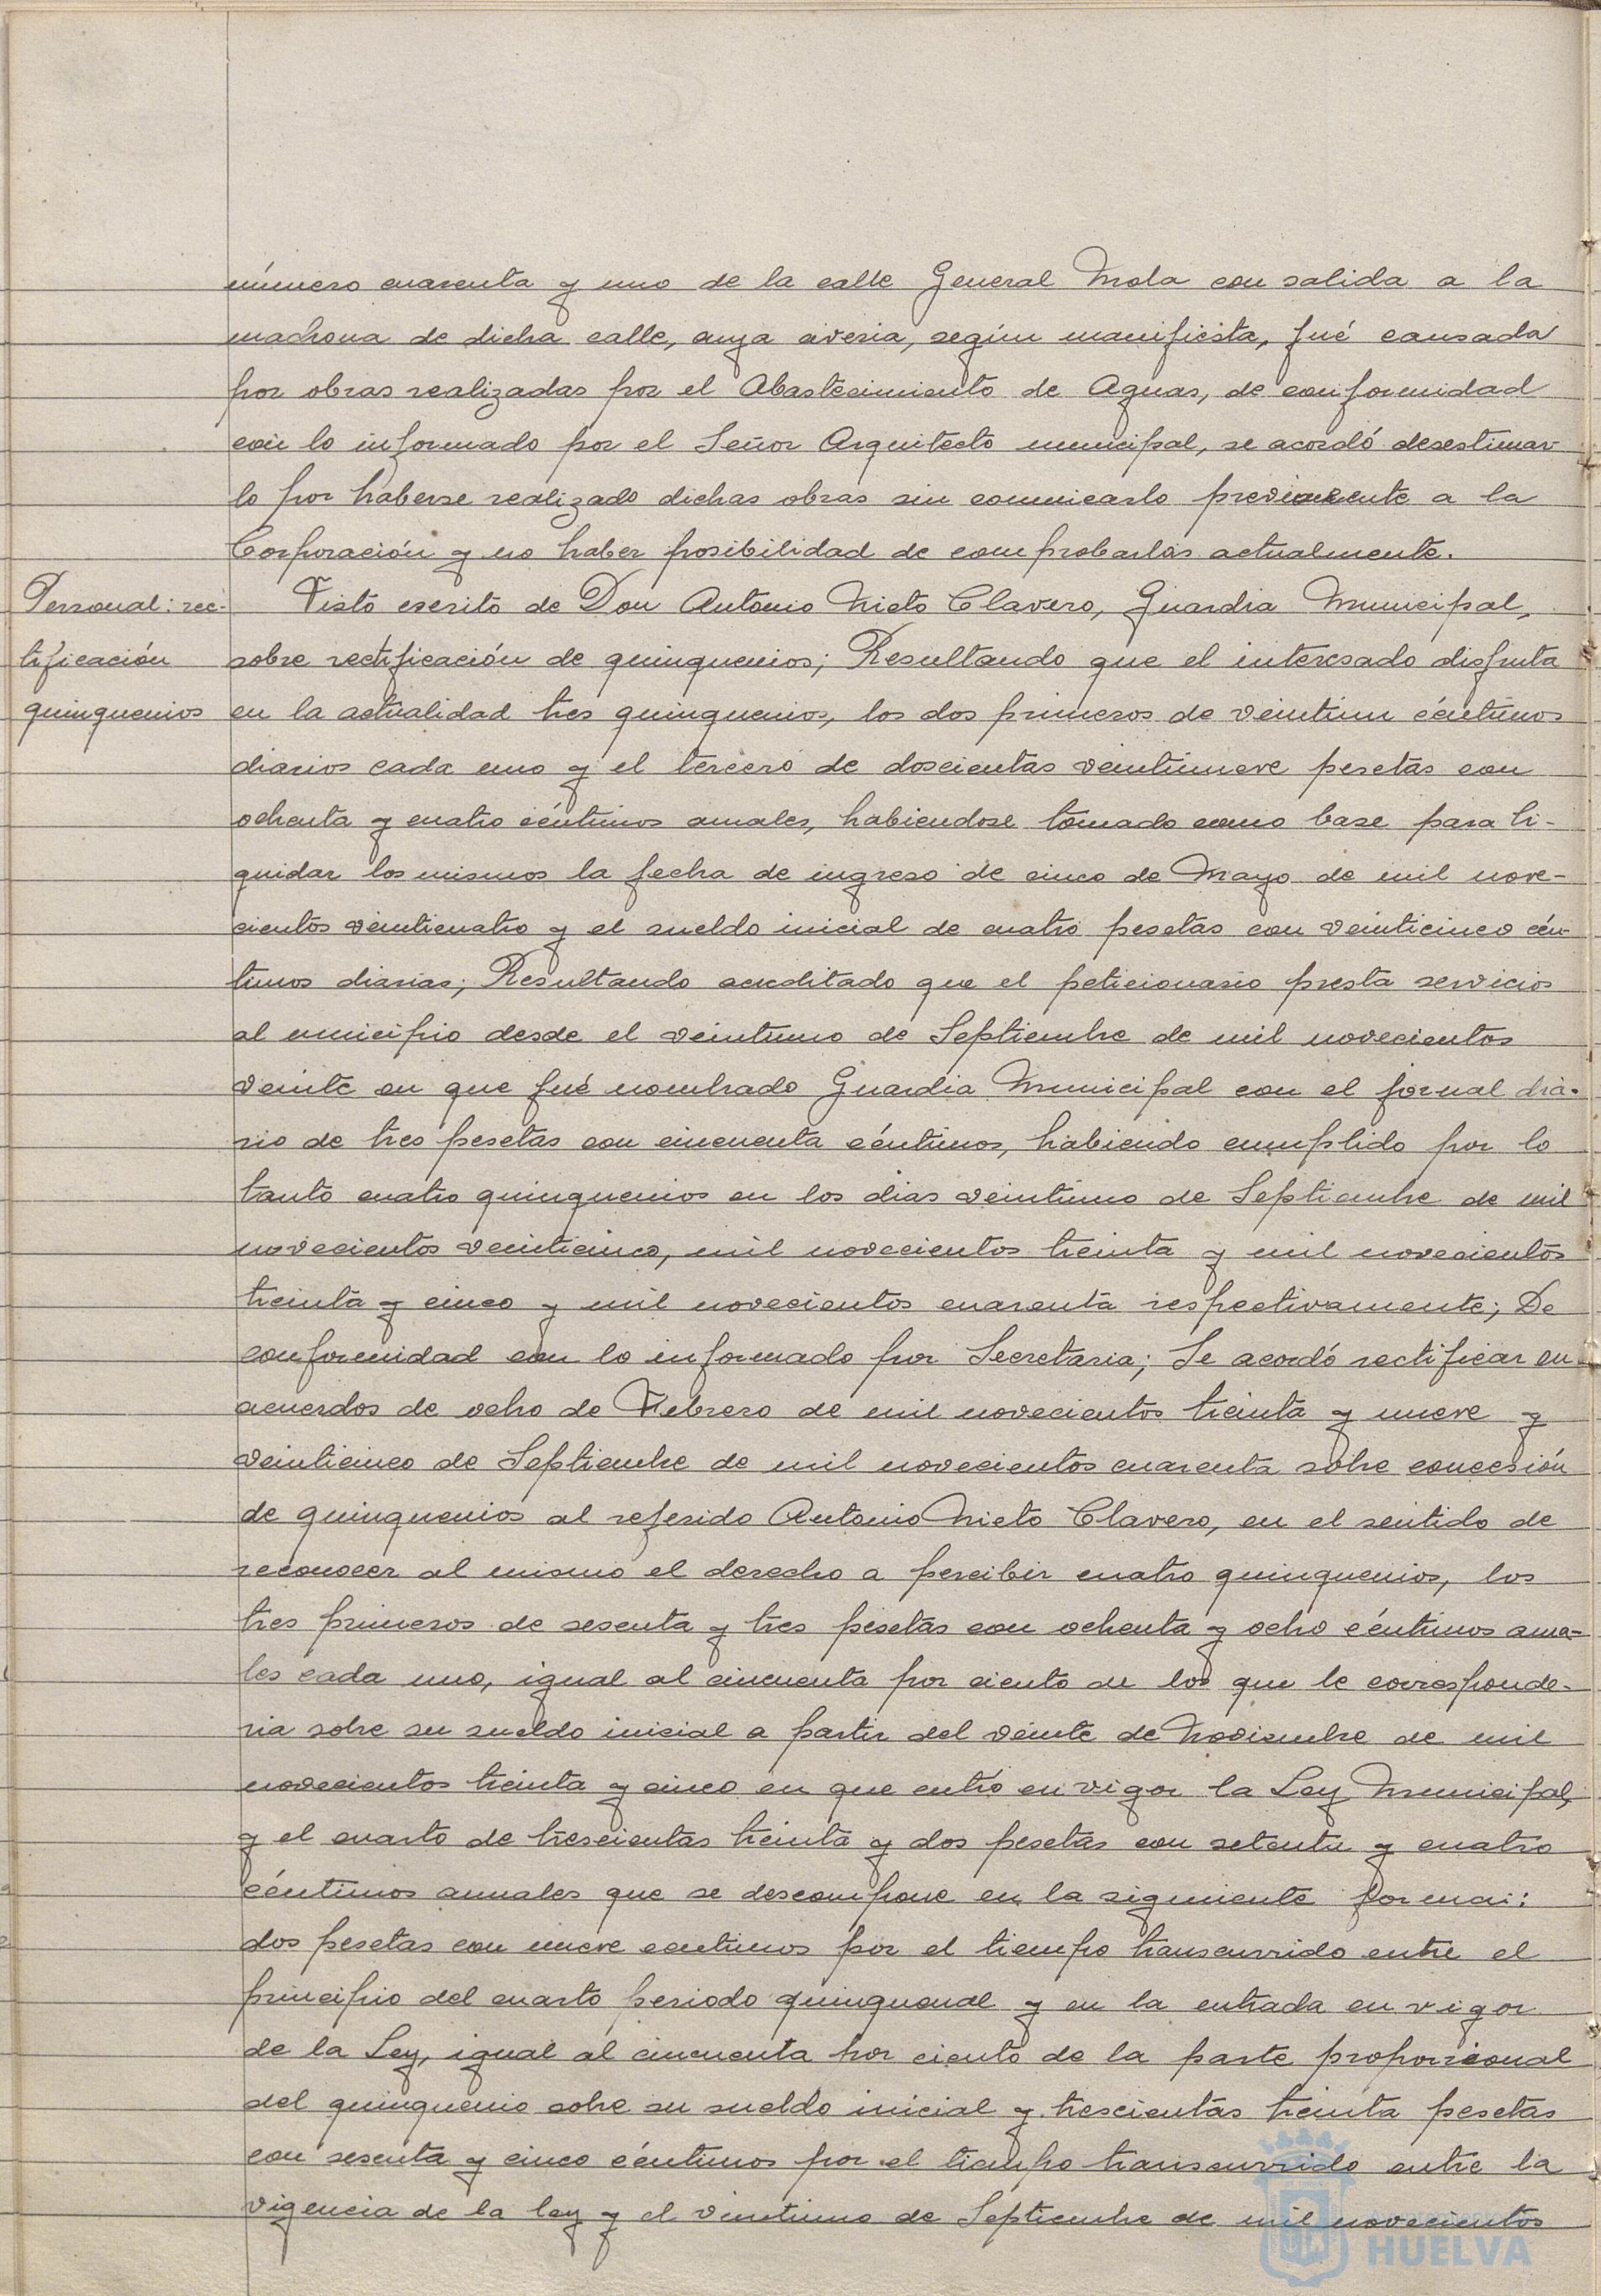 número cuarenta y uno de la calle General Mola con salida a la
machona de dicha calle, cuya averia, según manifiesta, fué causada
por obras realizadas por el Abastecimiento de Aguas, de conformidad
con lo informado por el Señor Arquitecto municipal, se acordó desestimar
lo por haberse realizado dichas obras sin comunicarlo previamente a la
Corporación y no haber posibilidad de comprobarlas actualmente.
Personal: rec-
tificación
quinquenios
Visto escrito de Don Antonio Nieto Clavero, Guardia Municipal,
sobre rectificación de quinquenios; Resultando que el interesado disfruta
en la actualidad tres quinquenios, los dos primeros de veintiun céntimos
diarios cada uno y el tercero de doscientas veintinueve pesetas con
ochenta y cuatro céntimos anuales, habiendose tomado como base para li-
quidar los mismos la fecha de ingreso de cinco de Mayo de mil nove-
cientos veinticuatro y el sueldo inicial de cuatro pesetas con veinticinco cén-
timos diarias; Resultando acreditado que el peticionario presta servicios
al municipio desde el veintiuno de Septiembre de mil novecientos
veinte en que fué nombrado Guardia Municipal con el jornal dia-
rio de tres pesetas con cincuenta céntimos, habiendo cumplido por lo
tanto cuatro quinquenios en los dias veintiuno de Septiembre de mil
novecientos veinticinco, mil novecientos treinta y mil novecientos
treinta y cinco y mil novecientos cuarenta respectivamente; De
conformidad con lo informado por Secretaria; Se acordó rectificar en
acuerdos de ocho de Febrero de mil novecientos treinta y nueve y
veinticinco de Septiembre de mil novecientos cuarenta sobre concesión
de quinquenios al referido Antonio Nieto Clavero, en el sentido de
reconocer al mismo el derecho a percibir cuatro quinquenios, los
tres primeros de sesenta y tres pesetas con ochenta y ocho céntimos anua-
les cada uno, igual al cincuenta por ciento de los que le corresponde-
ria sobre su sueldo inicial a partir del veinte de Noviembre de mil
novecientos treinta y cinco en que entró en vigor la Ley Municipal,
y el cuarto de trescientas treinta y dos pesetas con setenta y cuatro
céntimos anuales que se descompone en la siguiente forma:
dos pesetas con nueve centimos por el tiempo transcurrido entre el
principio del cuarto periodo quinquenal y en la entrada en vigor
de la Ley, igual al cincuenta por ciento de la parte proporcional
del quinquenio sobre su sueldo inicial y trescientas treinta pesetas
con sesenta y cinco céntimos por el tiempo transcurrido entre la
vigencia de la ley y el veintiuno de Septiembre de mil novecientos
HUELVA